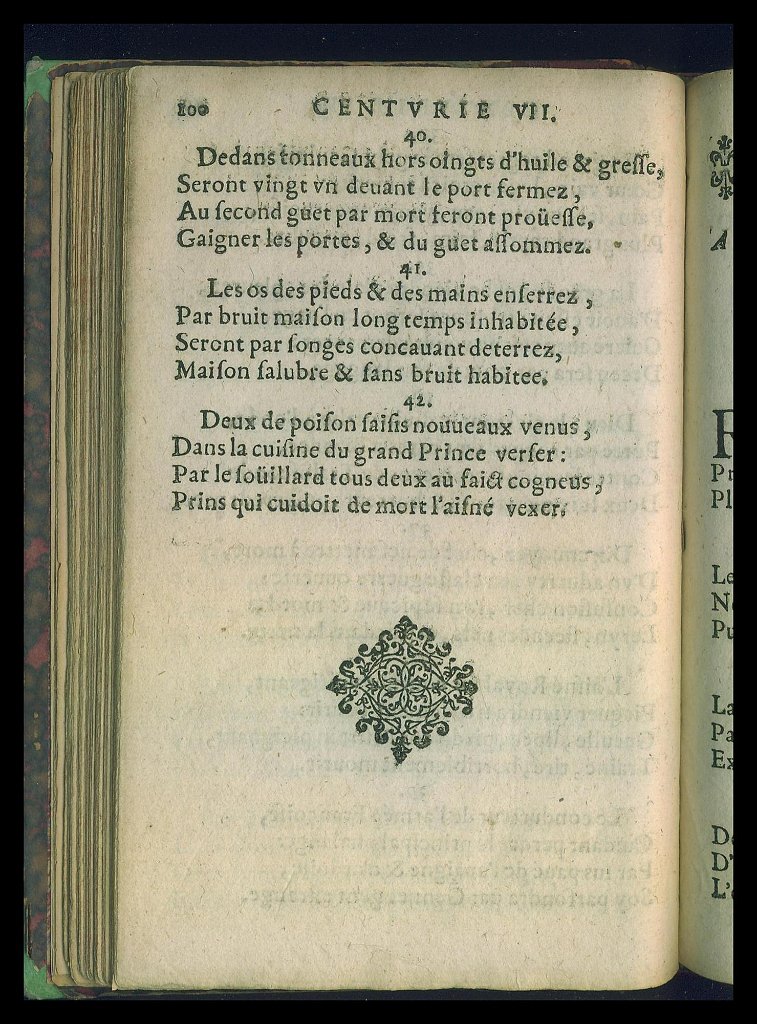 100 CENTVRIE VII.
40.
Dedans tonneaux hors oingts d'huile & greſſe,
Seront vingt vn deuant le port fermez,
Au ſecond guet par mort feront proüeſſe,
Gaigner les portes, & du guet aſſommez.
41.
Les os des pieds & des mains enſerrez,
Par bruit maiſon long temps inhabitée,
Seront par ſonges concauant deterrez,
Maiſon ſalubre & ſans bruit habitee.
42.
Deux de poiſon ſaiſis nouueaux venus,
Dans la cuiſine du grand Prince verſer:
Par le ſoüillard tous deux au faict cogneus,
Prins qui cuidoit de mort l'aiſné vexer.
A
Pr
Pl
Le
Pu
La
Pa
Ex
D'